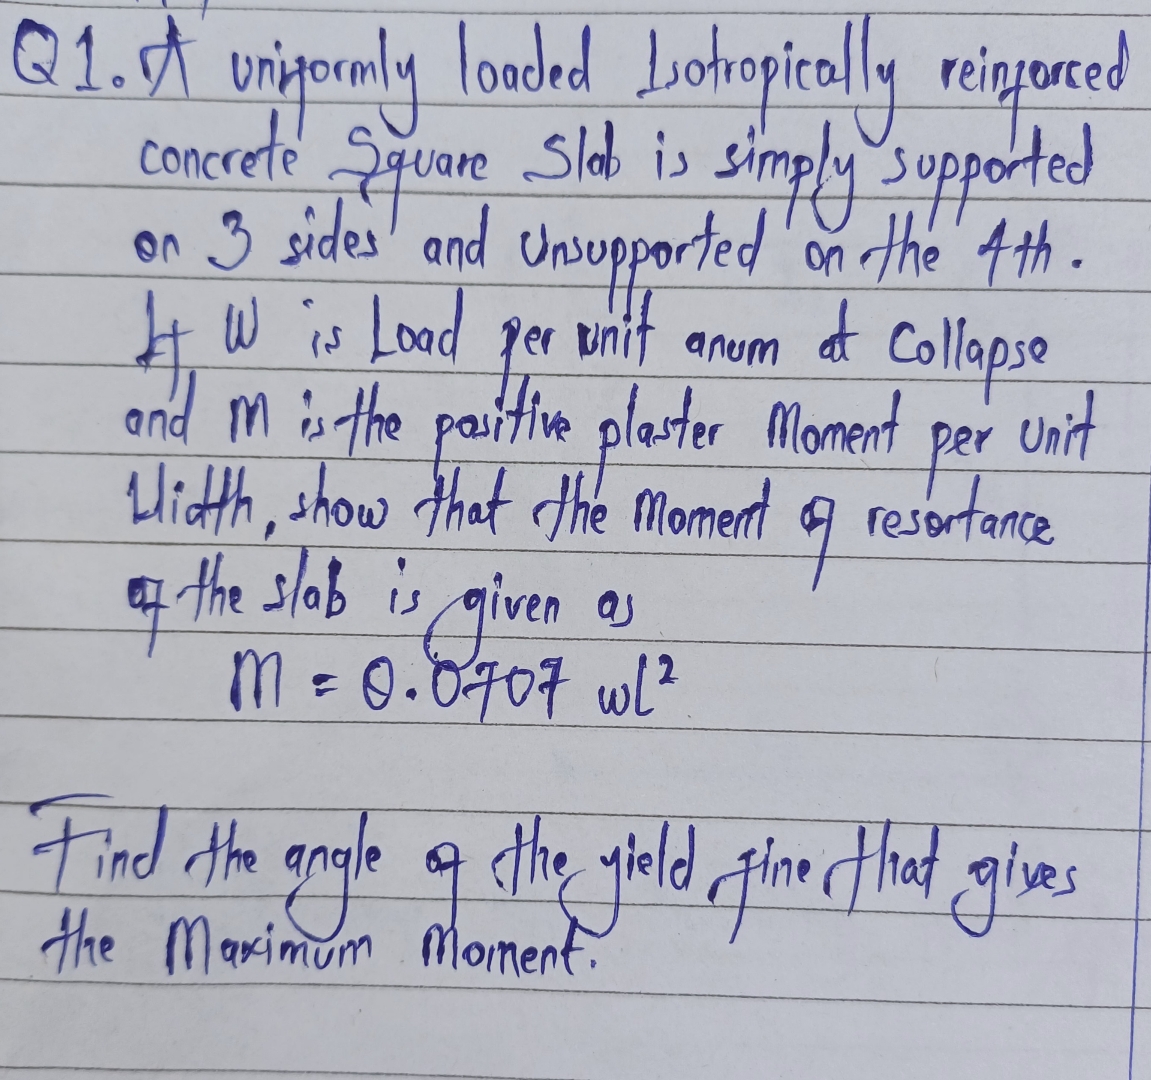 Q1. A uniformly loaded Isotropically reinforced
concrete Square Slab is simply supported
on 3 sides and Unsupported on the 4th.
If W is Load per unit anum at Collapse
and M is the positive plaster Moment per Unit
Width, show that the Moment of resortance
of the slab is given as
M = 0.0707 wL²
Find the angle of the yield fine that gives
the Maximum Moment.